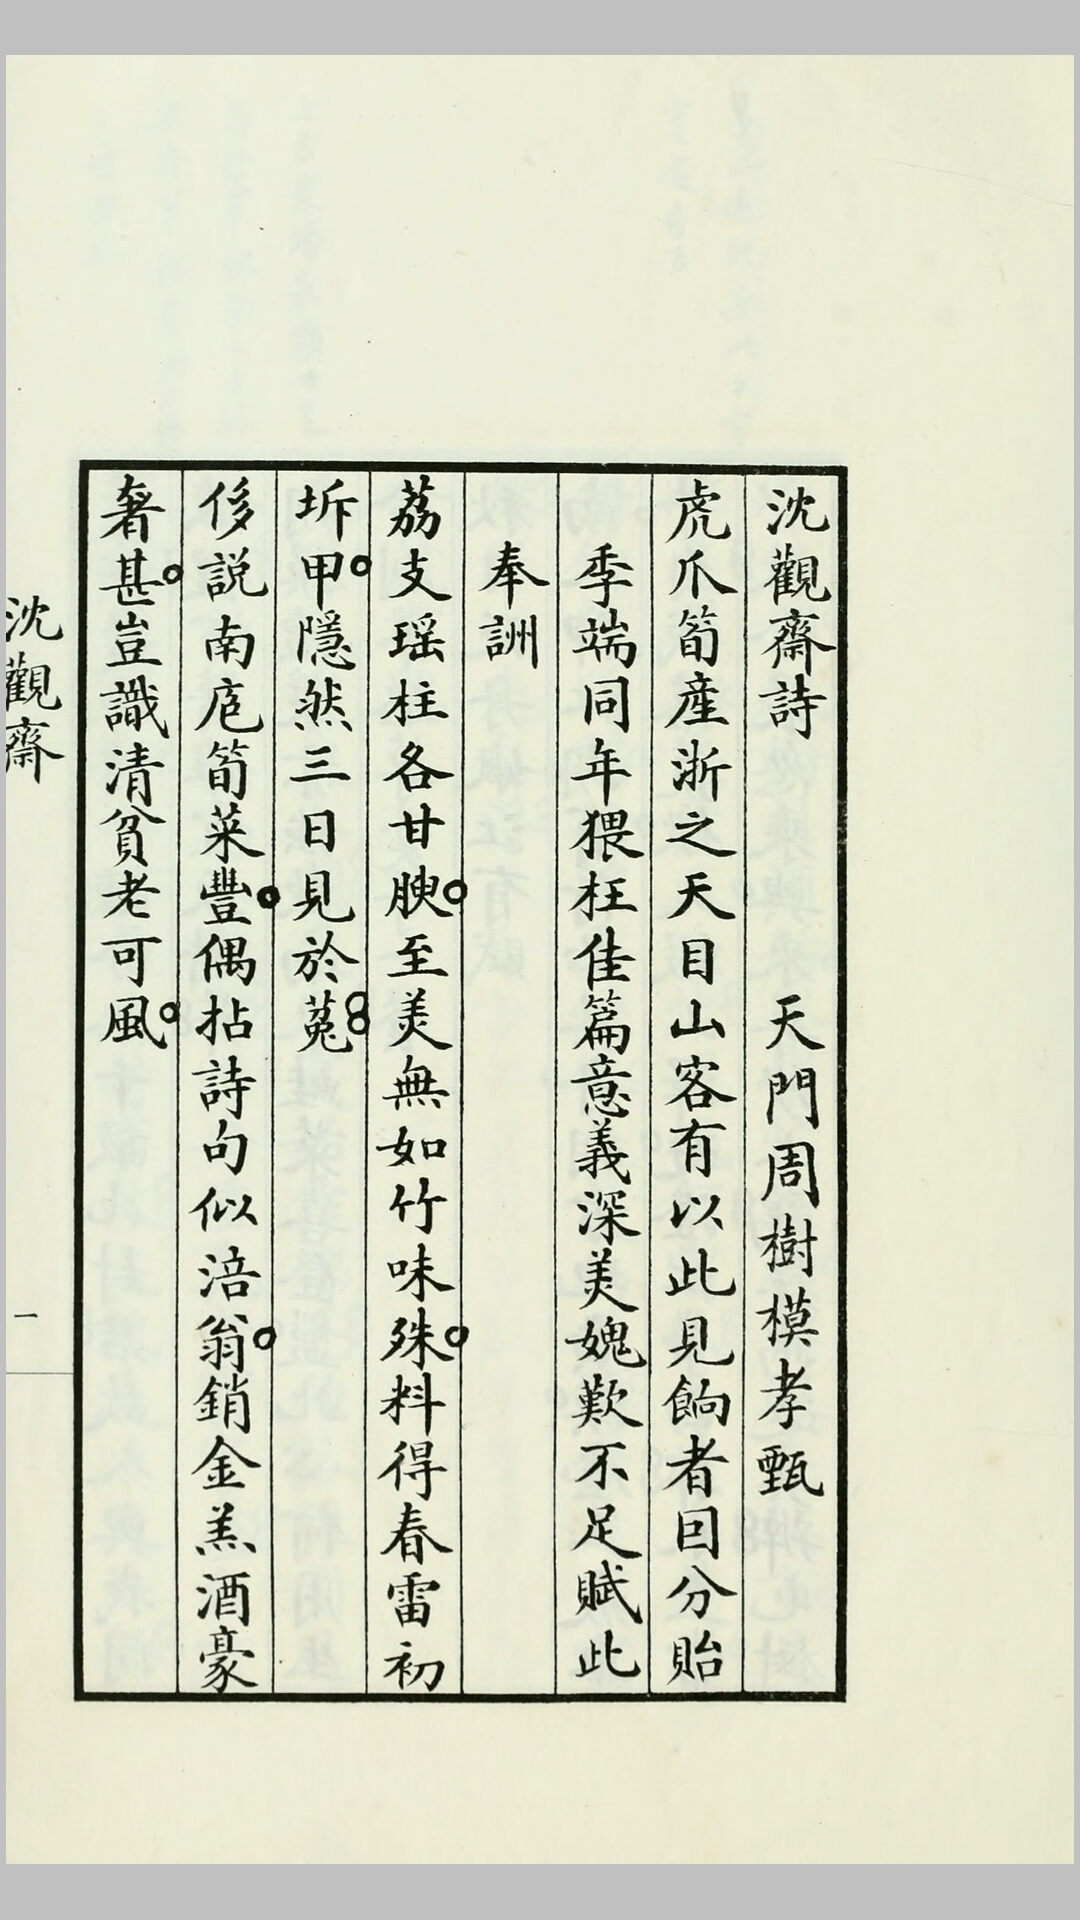 沈觀齋詩　天門周樹模孝甄
虎爪筍産浙之天目山客有以此見餉者回分貽
季端同年猥枉佳篇意義深美媿歎不足賦此
奉詶
荔支瑶柱各甘腴至美無如竹味殊料得春雷初
坼甲隱然三日見於菟
侈説南庖筍菜豐偶拈詩句似涪翁銷金羔酒豪
奢甚豈識清貧老可風
沈觀齋
一